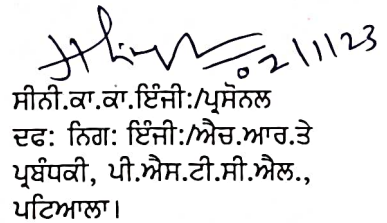 02/1/23
ਸੀਨੀ.ਕਾ.ਕਾ.ਇੰਜੀ:/ਪ੍ਰਸੋਨਲ
ਦਫ: ਨਿਗ: ਇੰਜੀ:/ਐਚ.ਆਰ.ਤੇ
ਪ੍ਰਬੰਧਕੀ, ਪੀ.ਐਸ.ਟੀ.ਸੀ.ਐਲ.,
ਪਟਿਆਲਾ।